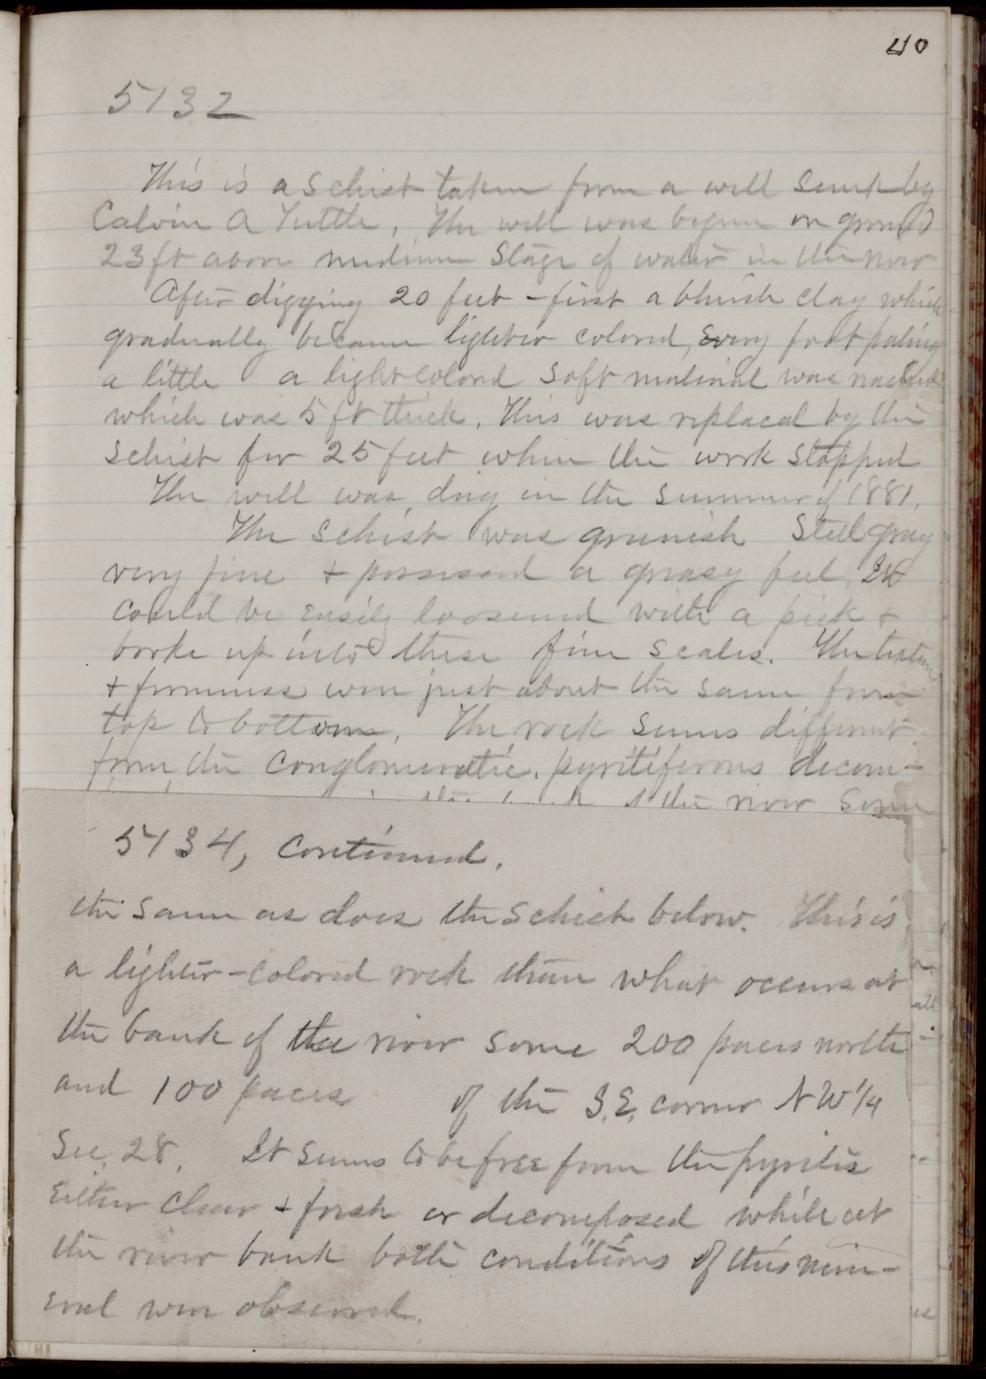 40
5132
This is a schist taken from a well sunk by
Calvin A Tuttle. The well was begun on ground
23 ft above medium stage of water in the river
After digging 20 feet - first a bluish clay which
gradually became lighter colored, every foot paling
a little a light colored soft material was reached
which was 5 ft thick. This was replaced by the
schist for 25 feet when the work stopped
The well was dug in the summer of 1881.
The schist was greenish steel gray
very fine + possessed a greasy feel. It
could be easily loosened with a pick +
broke up into these fine scales. The texture
+ firmness were just about the same from
top to bottom. The rock seems different
from the conglomeratic, pyritiferous decom-
the river some
5134, continued.
the same as does the schist below. This is
a lighter-colored rock than what occurs at
the bank of the river some 200 paces north
and 100 paces of the S.E. corner NW 1/4
Sec. 28. It seems to be free from the pyrites
either clear + fresh or decomposed while at
the river bank both conditions of this min-
eral were observed.